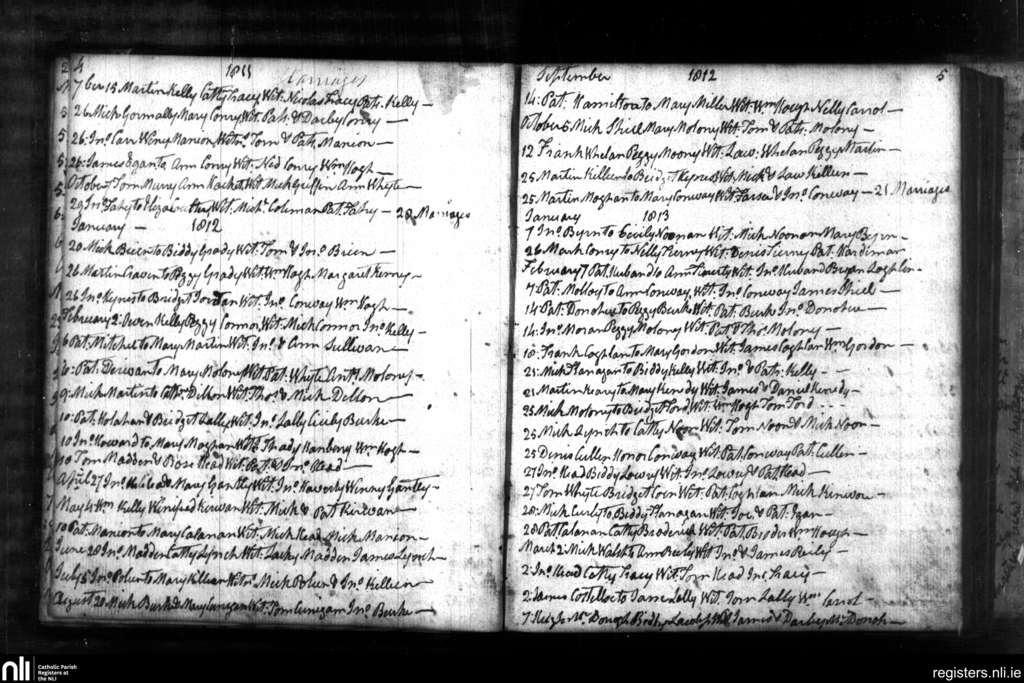 4
1811
Marriages
7ber 15 Martin Kelly Catty Tracy Wit: Nicolas Tracy Patr. Kelly —
26 Mich Gormally Mary Conry Wit: Patr. & Darby Conry —
26. Jno. Carr Winy Manion Wit: Tom & Pat. Manion —
26. James Egan to Ann Conry Wit: Ned Conry Wm. Hogh —
October Tom Murry Ann Wit: Mich Griffin Ann Whyte
29 Jno. Fahy to Wit: Mich: Coleman Pat. Fahy — 28 Marriages
January — 1812
20 Mich Brien to Biddy Grady Wit: Tom & Jno. Brien —
26 Martin Craven to Peggy Grady Wit: Wm. Hogh Margaret Kenny —
26 Jno. Kynes to Bridget Jordan Wit: Jno. Conway Wm. Hogh —
February 2 Owen Kelly Peggy Connor Wit: Mich Connor Jno. Kelly —
6 Pat. Mitchel to Mary Martin Wit: Jno. & Ann Sullivan —
Pat: to Mary Molony Wit: Pat. Whyte Antn. Molony —
9 Mich Martin to Cathn. Dillon Wit: Thos. & Mich Dillon —
10 Pat. Holahan & Bridget Lally Wit: Jno. Lally Cicily Burke —
10 Jno. Howard to Mary Moghan Wit: Thady Hanbery Wm. Hogh —
10 Tom Madden & Rose Head Wit: Pat. & Jno. Head —
April 27 Jno. Mary Gantly Wit: Jno. Haverty Winny Gantley —
May 4 Wm. Kelly Winifred Kirwan Wit: Mich & Pat Kirwan —
10 Pat. Manion to Mary Calanan Wit: Mich Head Mich Manion —
June 20 Jno. Madden Catty Lynch Wit: Lacky Madden James Lynch —
July 5 Jno. to Mary Killeen Wit: Mich & Jno. Killeen
August 20 Mich Burk & Mary Wit: Tom Jno. Burke —
September 1812 5
14. Pat. Hamilton to Mary Miller Wit: Wm. Hough Nelly Carrol —
October 5 Mich Shiel Mary Molony Wit: Tom & Pat. Molony —
12 Frank Whelan Peggy Moony Wit: Law: Whelan Peggy Martin —
25 Martin Killeen to Bridget Kynes Wit: Mich & Law Killeen —
25 Martin Moghan to Mary Conway Wit: & Jno. Conway — 21 Marriages
January 1813
7 Jno. Byrn to Cecily Noonan Wit: Mich Noonan Mary Byrn —
26 Mark Conry to Nelly Tierny Wit: Denis Tierny Pat. Hardiman
February 7 Pat. Husband to Ann Wit: Jno. Husband Bryan Loghlin —
7 Pat. Molloy to Ann Conway Wit: Jno. Conway James Shiel —
14 Pat: Donohue to Peggy Burke Wit: Pat. Burk Jno. Donohue —
14. Jno. Moran Peggy Molony Wit: Pat & Thos. Molony —
Frank Coghlan to Mary Gordon Wit: James Coghlan Wm. Gordon —
21. Mich Flanagan to Biddy Kelly Wit: Jno. & Patr. Kelly —
21 Martin Keary to Mary Kenedy Wit: James & Daniel Kenedy —
25 Mich Molony to Bridget Ford Wit: Wm. Hogh Tom Ford
25 Mich Lynch to Catty Noon Wit: Tom Noon & Mich Noon —
25 Denis Cullen Honor Conway Wit: Pat. Conway Pat. Cullen —
27 Jno. Head Biddy Lowry Wit: Jno. Lowry & Pat. Head —
27 Tom Whyte Bridget Coen Wit: Pat. Coghlan Mich Kirwan —
28 Mich Curly to Biddy Flanagan Wit: Joe & Pat. Egan —
28 Pat Calanan Catty Broderick Wit: Pat. Broder Wm. Hough —
March 2 Mich Walsh to Ann Wit: Jno. & James —
2. Jno. Head Catty Tracy Wit: Tom Head Jno. Tracy —
2 James Costelloe to Jane Lally Wit: Tom Lally Wm. Carrol —
7 Mc. Donogh Wit: James & Darby Mc. Donoh —
nli Catholic Parish Registers at the NLI
registers.nli.ie